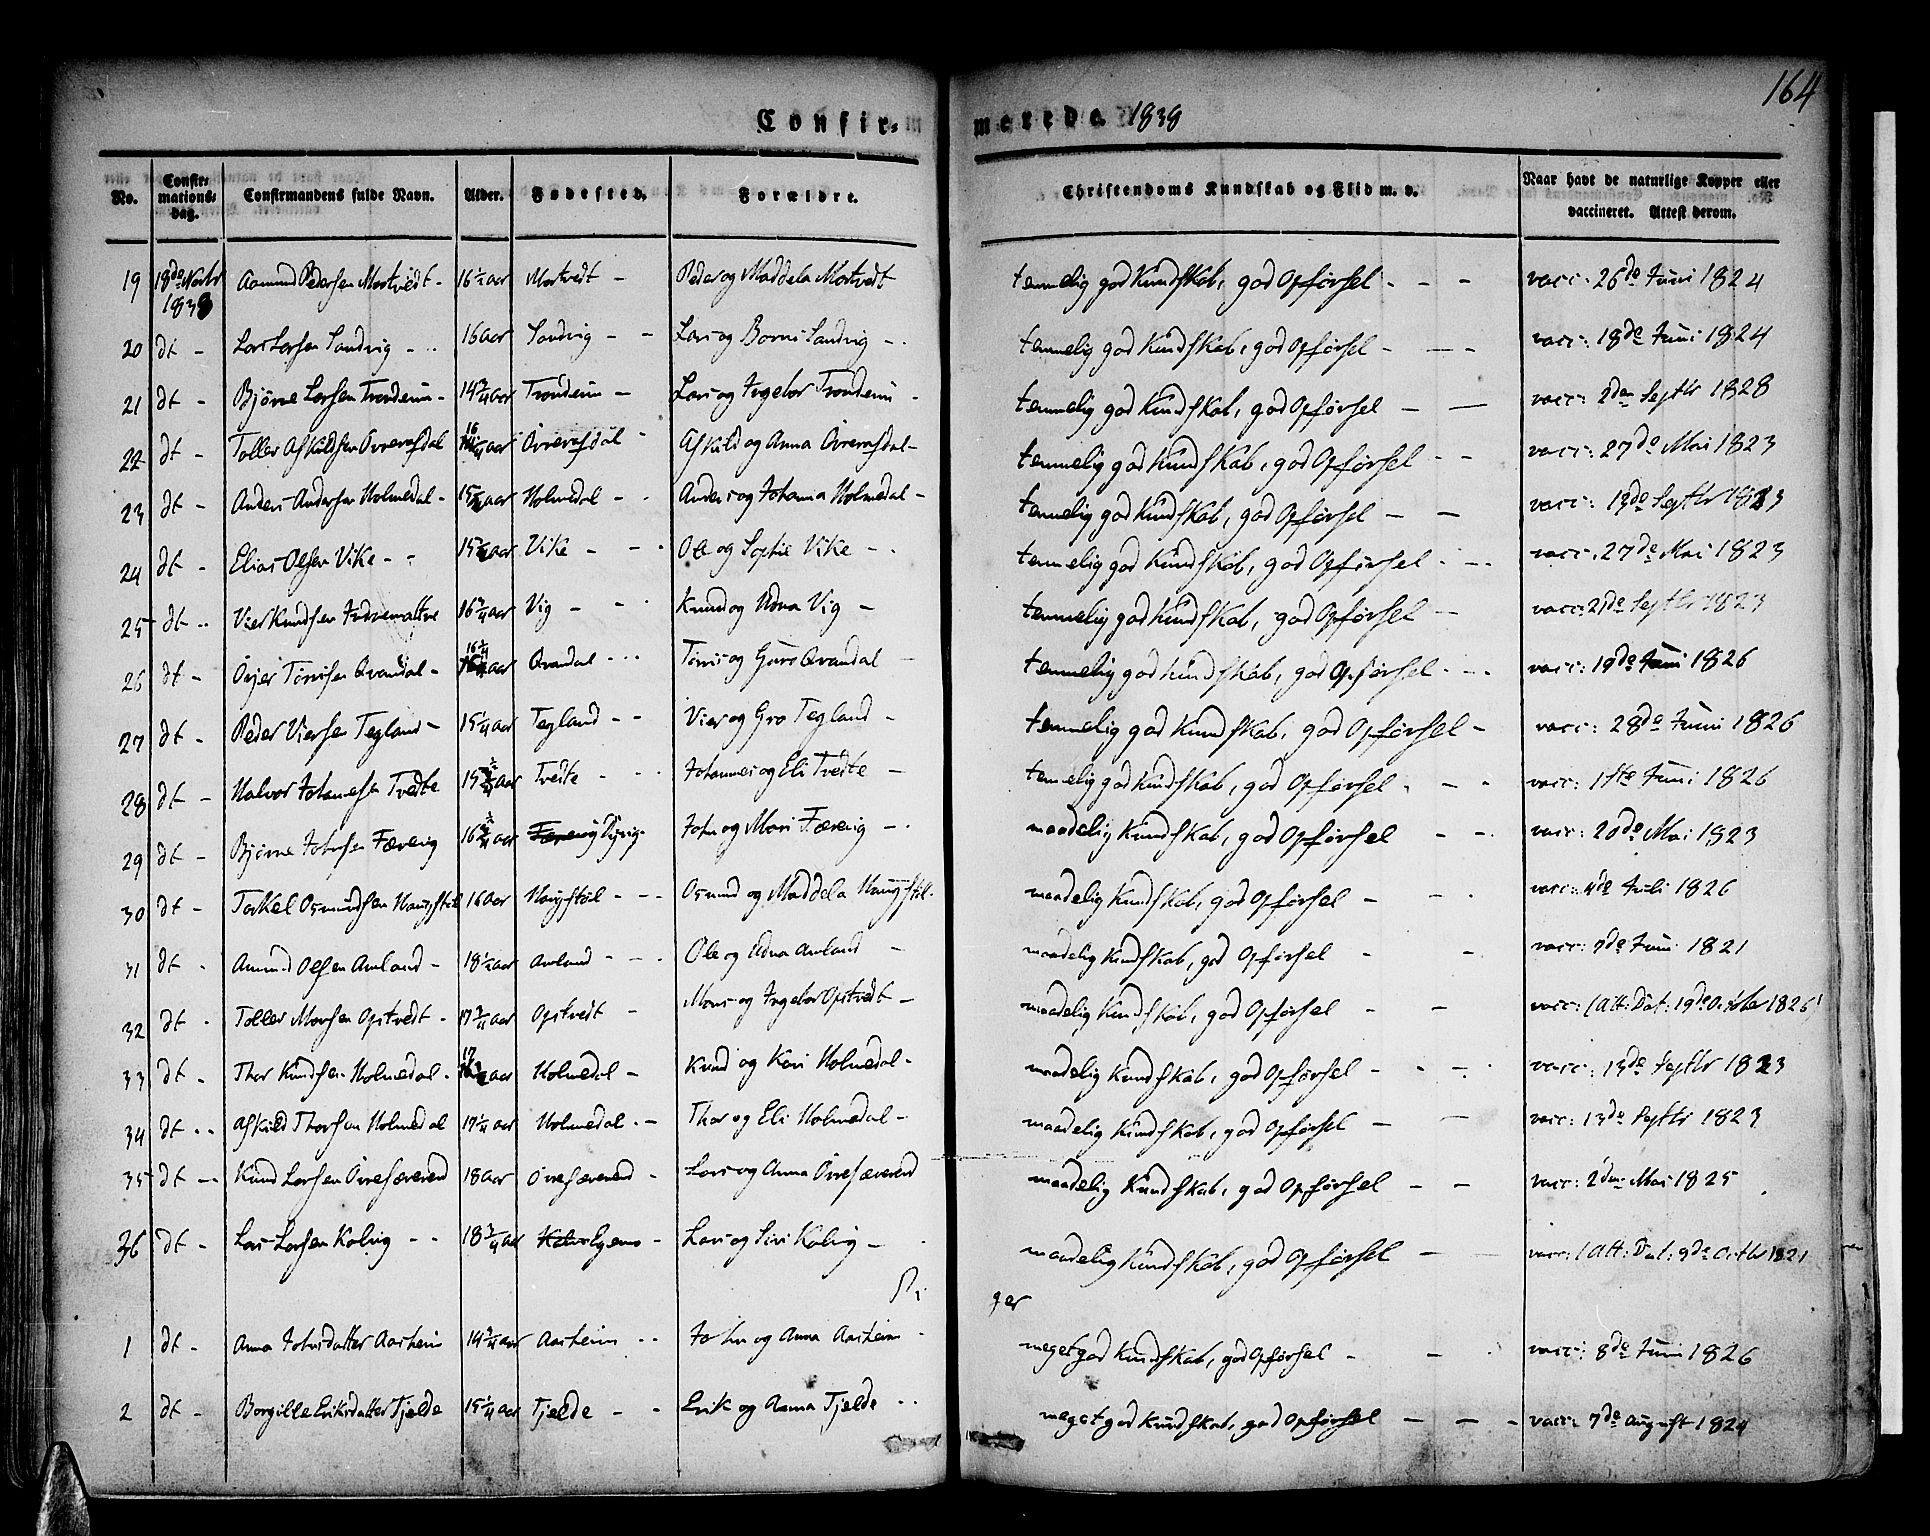 164
Confir= merede. 1838
No. Confirmations-dag. Confirmandens fulde Navn. Alder. Fødested. Forældre. Christendoms Kundskab og Flid m. v. Naar havt de naturlige Kopper eller vaccineret. Attest derom.
19 18de 1838 Aamund Pedersen Mortvedt - 16 1/2 aar Mortvedt - Peder og Maddela Mortvedt temmelig god Kundskab, god Opførsel - - - vacc: 26de Juni 1824
20 dt - Lars Larsen Sandvig - 16 aar Sandvig - - Lars og Sandvig - temmelig god Kundskab, god Opførsel - - - vacc: 18de Juni 1824
21 dt - Bjørne Larsen - 14 3/4 aar - Lars og Ingebor - temmelig god Kundskab, god Opførsel - - vacc: 2den Septbr 1828
22 dt - Tollev Afkildsen 16 aar Afkild og Anna temmelig god Kundskab, god Opførsel - - vacc: 27de Mai 1823
23 dt - Anders Andersen Holmedal - aar Holmedal - - Anders og Johanna Holmedal - temmelig god Kundskab, god Opførsel - - vacc: 13de Septbr 1823
24 dt - Elias Olsen Vike - - aar Vike - - - Ole og Sophie Vike - - temmelig god Kundskab, god Opførsel - - - vacc: 27de Mai 1823
25 dt - Vier Knudsen 16 3/4 aar Vig - - - Knud og Udna Vig - temmelig god Kundskab, god Opførsel - vacc: 21de Septbr 1823
26 dt - Qvandal - 16 1/4 aar Qvandal - - - og Guro Qvandal - temmelig god Kundskab, god Opførsel - - - vacc: 19de Juni 1826
27 dt - Peder Viersen Tegland - 15 1/4 aar Tegland - - Vier og Gro Tegland - temmelig god Kundskab, god Opførsel - vacc: 28de Juni 1826
28 dt - Halvor Johannesen Tvedte 15 1/2 aar Tvedte - - - Johannes og Eli Tvedte - temmelig god Kundskab, god Opførsel - - - vacc: 1ste Juni 1826
29 dt - Bjørne Johnsen Færevig 16 1/2 aar John og Mari Færevig - - maadelig Kundskab, god Opførsel - - vacc: 20de Mai 1823
30 dt - Torkel Osmundsen Haugstøl 16 aar Haugstøl - - - Osmund og Maddela Haugstøl - maadelig Kundskab, god Opførsel - - - vacc: 4de Juli 1826
31 dt - Amund Olsen Amland - 18 1/2 aar Amland - - - Ole og Udna Amland - maadelig Kundskab, god Opførsel - - vacc: 7de Juni 1821
32 dt - Tollev Monsen Opstvedt - 17 3/4 aar Opstvedt - Mons og Ingebor Opstvedt - maadelig Kundskab, god Opførsel - - vacc: (Att: Dat: 19de Octbr 1826)
33 dt - Thor Knudsen Holmedal - 17 aar Holmedal - Knud og Kari Holmedal - maadelig Kundskab, god Opførsel - - - vacc: 13de Septbr 1823
34 dt - - Afkild Thorsen Holmedal 17 1/4 aar Holmedal - - Thor og Eli Holmedal - maadelig Kundskab, god Opførsel - - vacc: 13de Septbr 1823
35 dt - - Knud Larsen Øvrefæverend 18 aar Øvrefæverend - Lars og Anna Øvrefæverend maadelig Kundskab, god Opførsel - - vacc: 2den Mai 1825
36 dt - Lars Larsen Kolvig - - 18 3/4 aar Lars og Siri Kolvig - maadelig Kundskab, god Opførsel - - vacc: (Att: Dat: 9de Octbr 1821
Pi ger
1 dt - Anna Johnsdatter Aarheim 14 3/4 aar Aarheim - - John og Anna Aarheim - meget god Kundskab, god Opførsel - - - vacc: 8de Juni 1826
2 dt - Borgille Eriksdatter Tjelde 15 1/4 aar Tjelde - - Erik og Anna Tjelde - - meget god Kundskab, god Opførsel - - - vacc: 7de August 1824